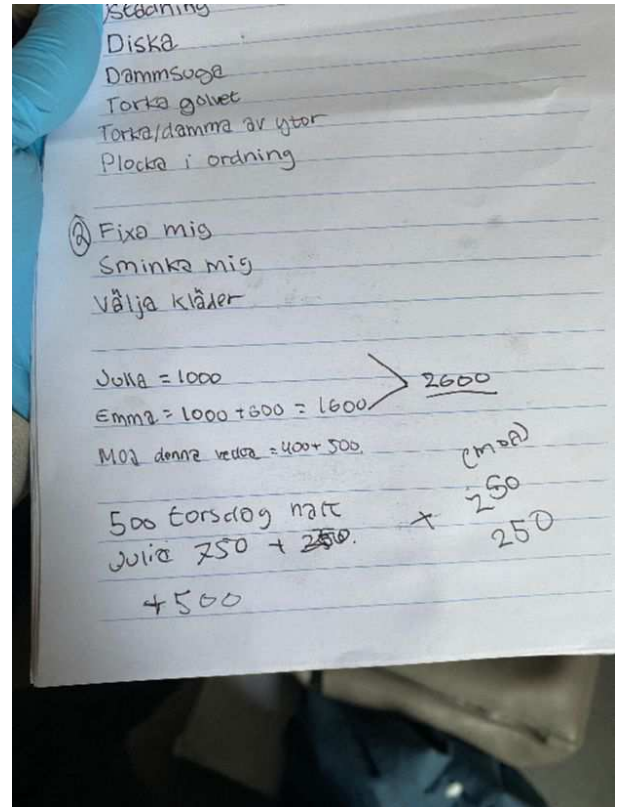 Städning
Diska
Dammsuga
Torka golvet
Torka/damma av ytor
Plocka i ordning
② Fixa mig
Sminka mig
Välja kläder
Julia = 1000
Emma = 1000 + 600 = 1600
2600
Moa denna vecka = 400 + 500.
(MOA)
500 torsdag natt + 250
Julia 750 + 250. 250
+ 500